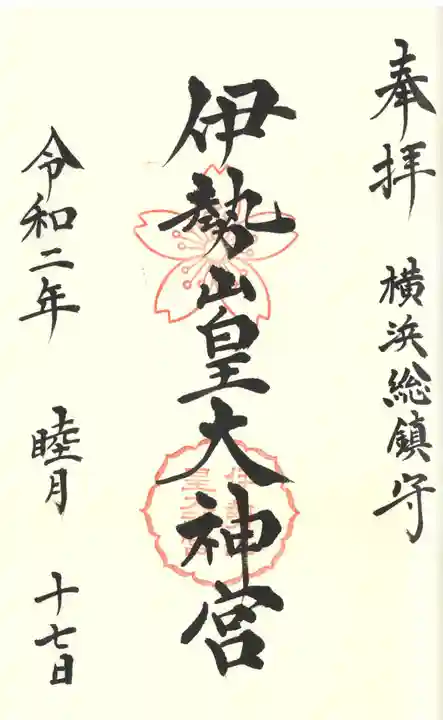 奉拝 横浜総鎮守
伊勢山皇大神宮
令和二年 睦月 十七日